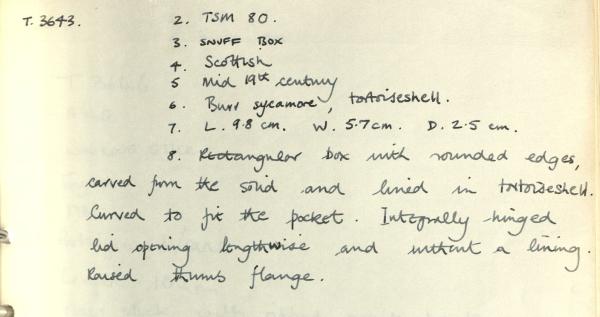 T. 3643. 2. TSM 80.
3. SNUFF BOX
4. Scottish
5 Mid 19th century
6. Burr sycamore, tortoiseshell.
7. L. 9.8 cm. W. 5.7cm. D. 2.5 cm.
8. Rectangular box with rounded edges,
carved from the solid and lined in tortoiseshell.
Curved to fit the pocket. Integrally hinged
lid opening lengthwise and without a lining.
Raised thumb flange.